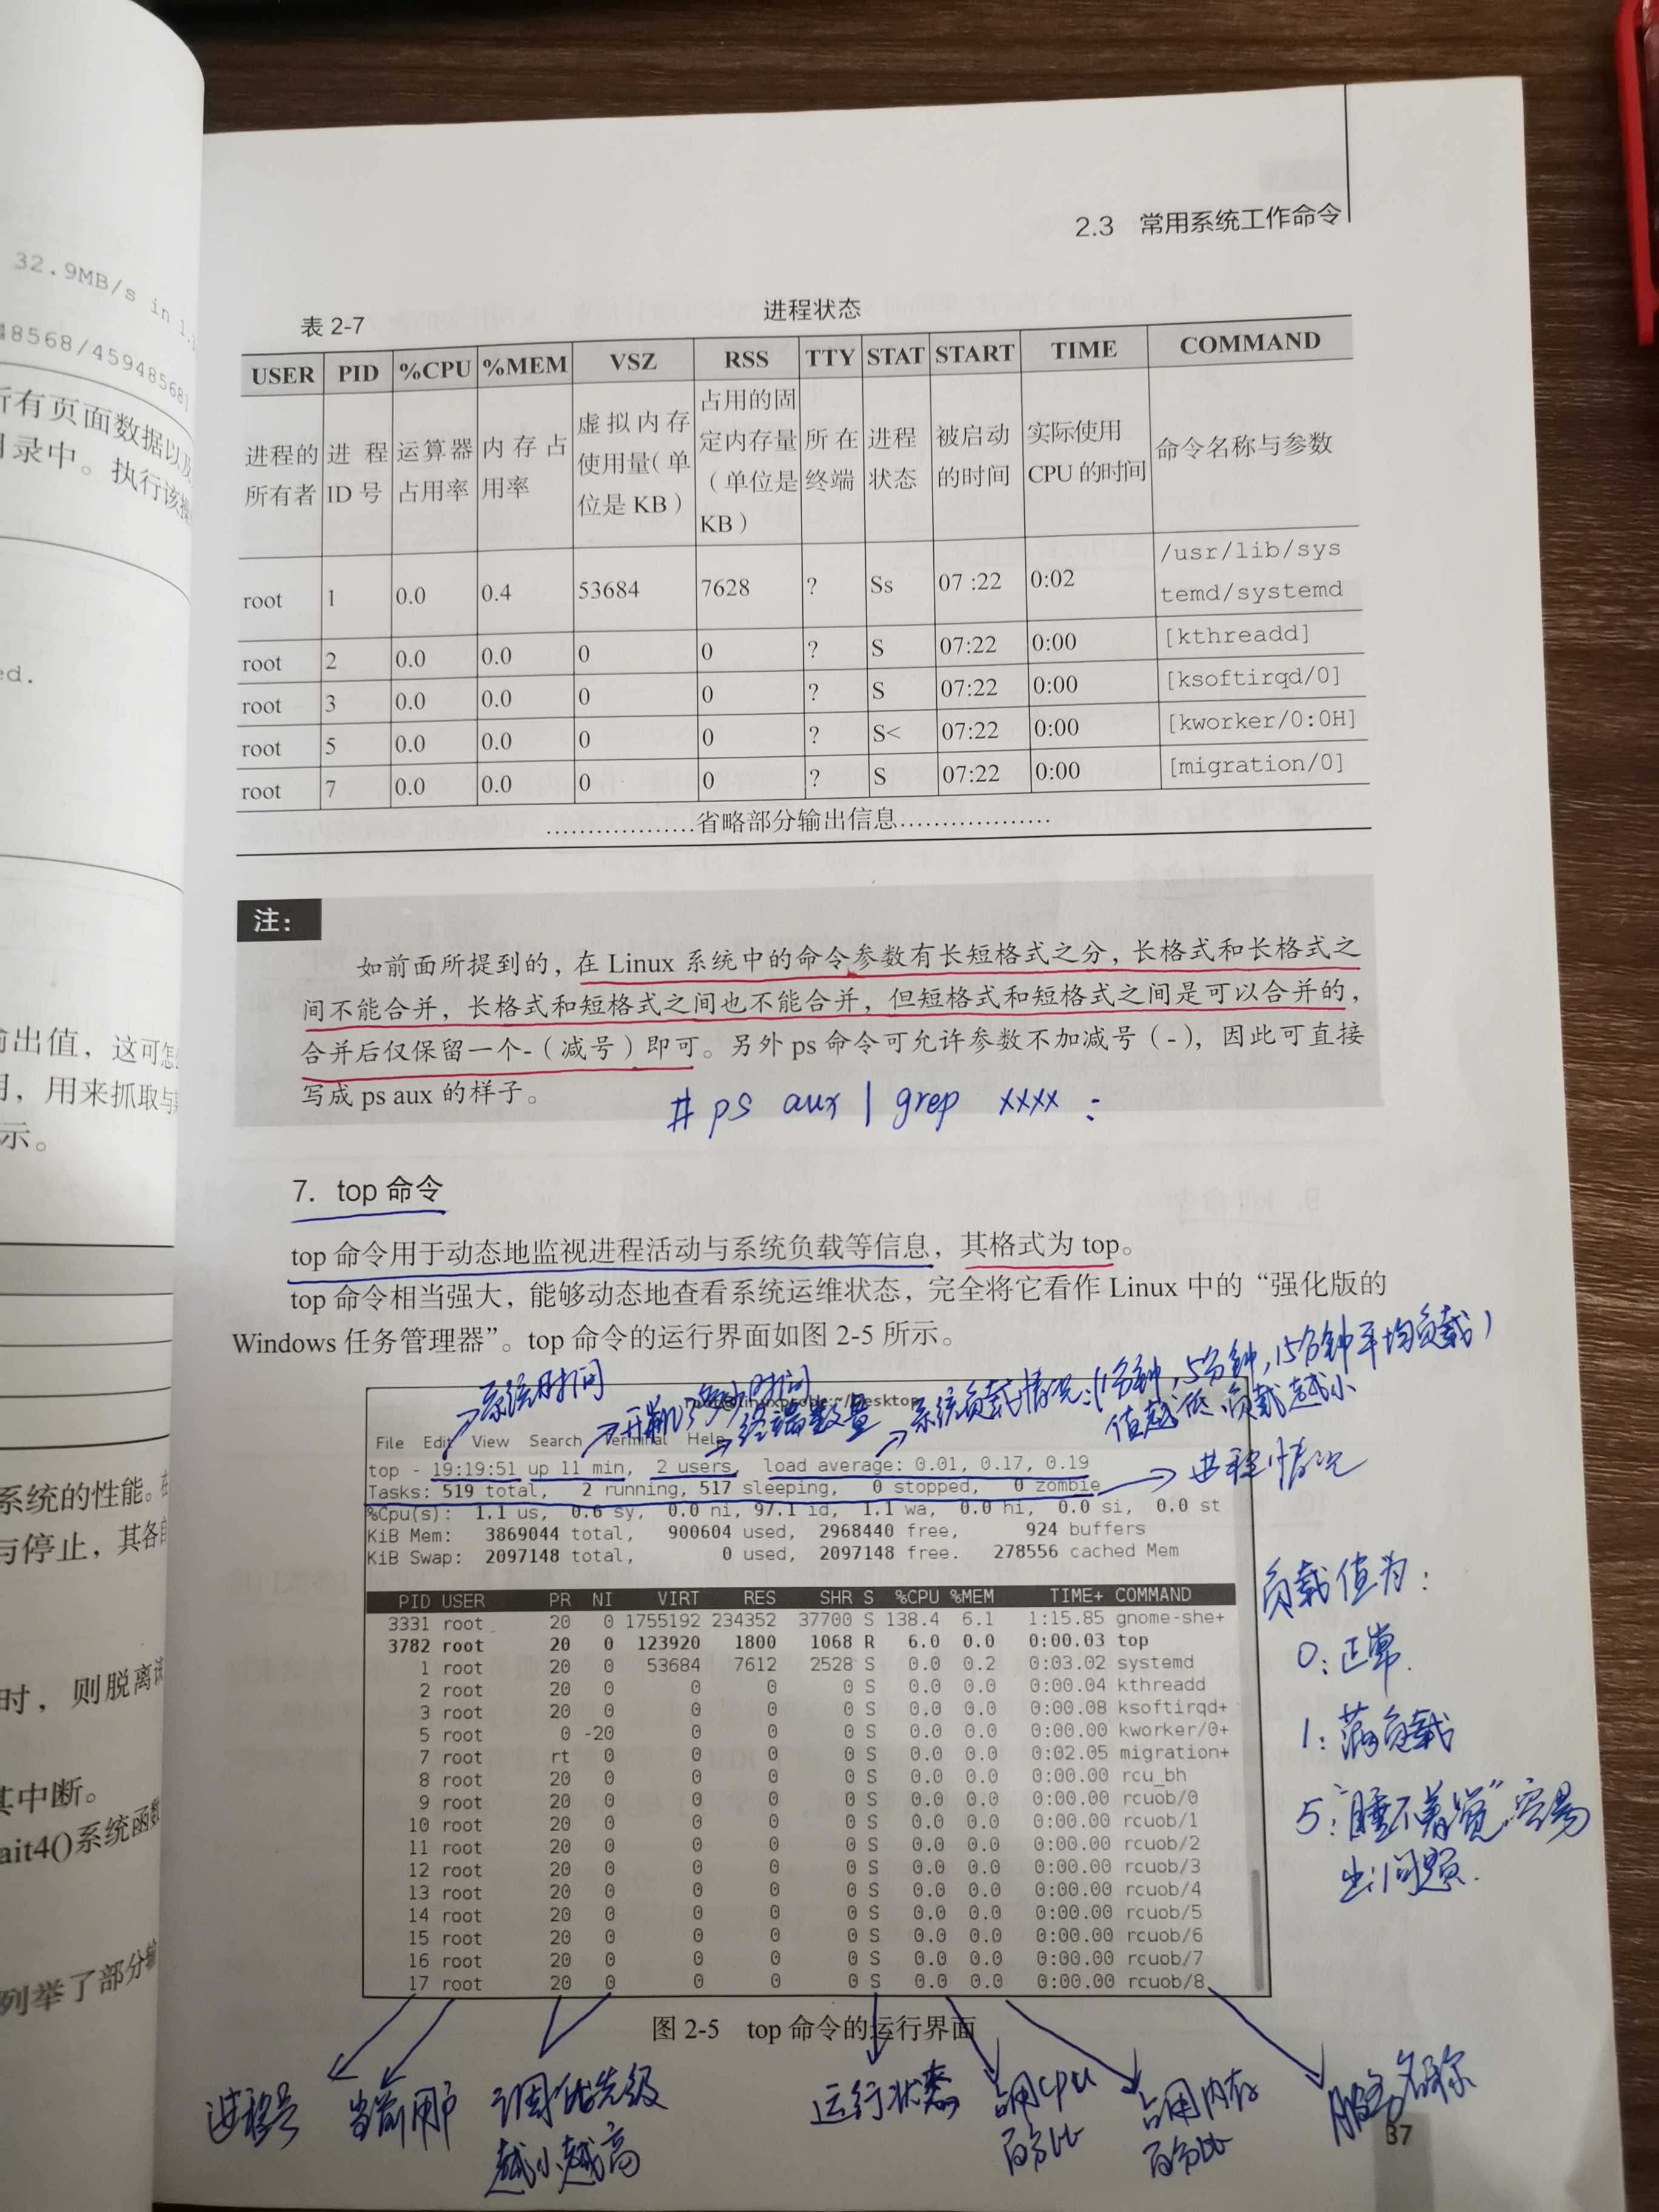 32.9MB/s in 1.
48568/45948568]
所有页面数据以及
目录中。执行该操
ed.
输出值，这可怎
用，用来抓取与
示。
系统的性能。在
与停止，其各自
时，则脱离
其中断。
ait4()系统函数
列举了部分输
2.3 常用系统工作命令
表 2-7 进程状态
USER PID %CPU %MEM VSZ RSS TTY STAT START TIME COMMAND
进程的所有者 进程 ID 号 运算器占用率 内存占用率 虚拟内存使用量（单位是 KB） 占用的固定内存量（单位是 KB） 所在终端 进程状态 被启动的时间 实际使用 CPU 的时间 命令名称与参数
root 1 0.0 0.4 53684 7628 ? Ss 07 :22 0:02 /usr/lib/systemd/systemd
root 2 0.0 0.0 0 0 ? S 07:22 0:00 [kthreadd]
root 3 0.0 0.0 0 0 ? S 07:22 0:00 [ksoftirqd/0]
root 5 0.0 0.0 0 0 ? S< 07:22 0:00 [kworker/0:0H]
root 7 0.0 0.0 0 0 ? S 07:22 0:00 [migration/0]
………………省略部分输出信息………………
注：
如前面所提到的，在 Linux 系统中的命令参数有长短格式之分，长格式和长格式之
间不能合并，长格式和短格式之间也不能合并，但短格式和短格式之间是可以合并的，
合并后仅保留一个-（减号）即可。另外 ps 命令可允许参数不加减号（-），因此可直接
写成 ps aux 的样子。
# ps aux | grep xxxx :
7. top 命令
top 命令用于动态地监视进程活动与系统负载等信息，其格式为 top。
top 命令相当强大，能够动态地查看系统运维状态，完全将它看作 Linux 中的“强化版的
Windows 任务管理器”。top 命令的运行界面如图 2-5 所示。
系统时间
开机到现在时间
终端数量
系统负载情况:(1分钟,5分钟,15分钟平均负载)
值越低 负载越小
进程情况
root@linuxprobe:~/Desktop
File Edit View Search Terminal Help
top - 19:19:51 up 11 min, 2 users, load average: 0.01, 0.17, 0.19
Tasks: 519 total, 2 running, 517 sleeping, 0 stopped, 0 zombie
%Cpu(s): 1.1 us, 0.6 sy, 0.0 ni, 97.1 id, 1.1 wa, 0.0 hi, 0.0 si, 0.0 st
KiB Mem: 3869044 total, 900604 used, 2968440 free, 924 buffers
KiB Swap: 2097148 total, 0 used, 2097148 free. 278556 cached Mem
PID USER PR NI VIRT RES SHR S %CPU %MEM TIME+ COMMAND
3331 root 20 0 1755192 234352 37700 S 138.4 6.1 1:15.85 gnome-she+
3782 root 20 0 123920 1800 1068 R 6.0 0.0 0:00.03 top
1 root 20 0 53684 7612 2528 S 0.0 0.2 0:03.02 systemd
2 root 20 0 0 0 0 S 0.0 0.0 0:00.04 kthreadd
3 root 20 0 0 0 0 S 0.0 0.0 0:00.08 ksoftirqd+
5 root 0 -20 0 0 0 S 0.0 0.0 0:00.00 kworker/0+
7 root rt 0 0 0 0 S 0.0 0.0 0:02.05 migration+
8 root 20 0 0 0 0 S 0.0 0.0 0:00.00 rcu_bh
9 root 20 0 0 0 0 S 0.0 0.0 0:00.00 rcuob/0
10 root 20 0 0 0 0 S 0.0 0.0 0:00.00 rcuob/1
11 root 20 0 0 0 0 S 0.0 0.0 0:00.00 rcuob/2
12 root 20 0 0 0 0 S 0.0 0.0 0:00.00 rcuob/3
13 root 20 0 0 0 0 S 0.0 0.0 0:00.00 rcuob/4
14 root 20 0 0 0 0 S 0.0 0.0 0:00.00 rcuob/5
15 root 20 0 0 0 0 S 0.0 0.0 0:00.00 rcuob/6
16 root 20 0 0 0 0 S 0.0 0.0 0:00.00 rcuob/7
17 root 20 0 0 0 0 S 0.0 0.0 0:00.00 rcuob/8
负载值为:
0:正常.
1:满负载
5:“睡不着觉”容易
出问题.
图 2-5 top 命令的运行界面
进程号
当前用户
调优先级
越小越高
运行状态
占用CPU
百分比
占用内存
百分比
服务名称
37